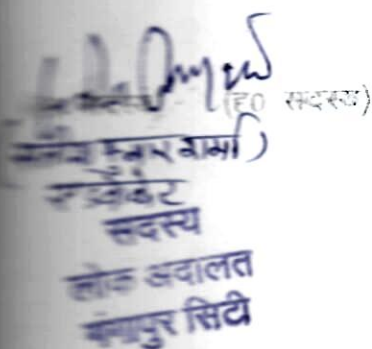 (ह0 सदस्य)
कुमार शर्मा)
एडवोकेट
सदस्य
लोक अदालत
गंगापुर सिटी